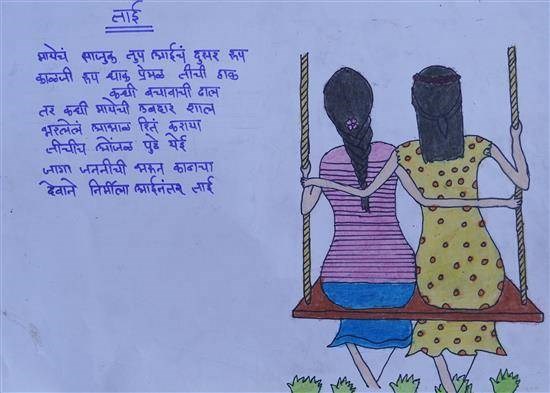 ताई
मायेचं साजुक तुप आईचं दुसरं रूप
काळजी रूप धाक प्रेमळ तीची हाक
कधी बचावाची ढाल
तर कधी मायेची उबदार शाल
भरलेलं आभाळ रितं कराया
तीचीच ओंजळ पुढे येई
जागा जननीची भरून काढाया
देवाने निर्मीली आईनंतर ताई